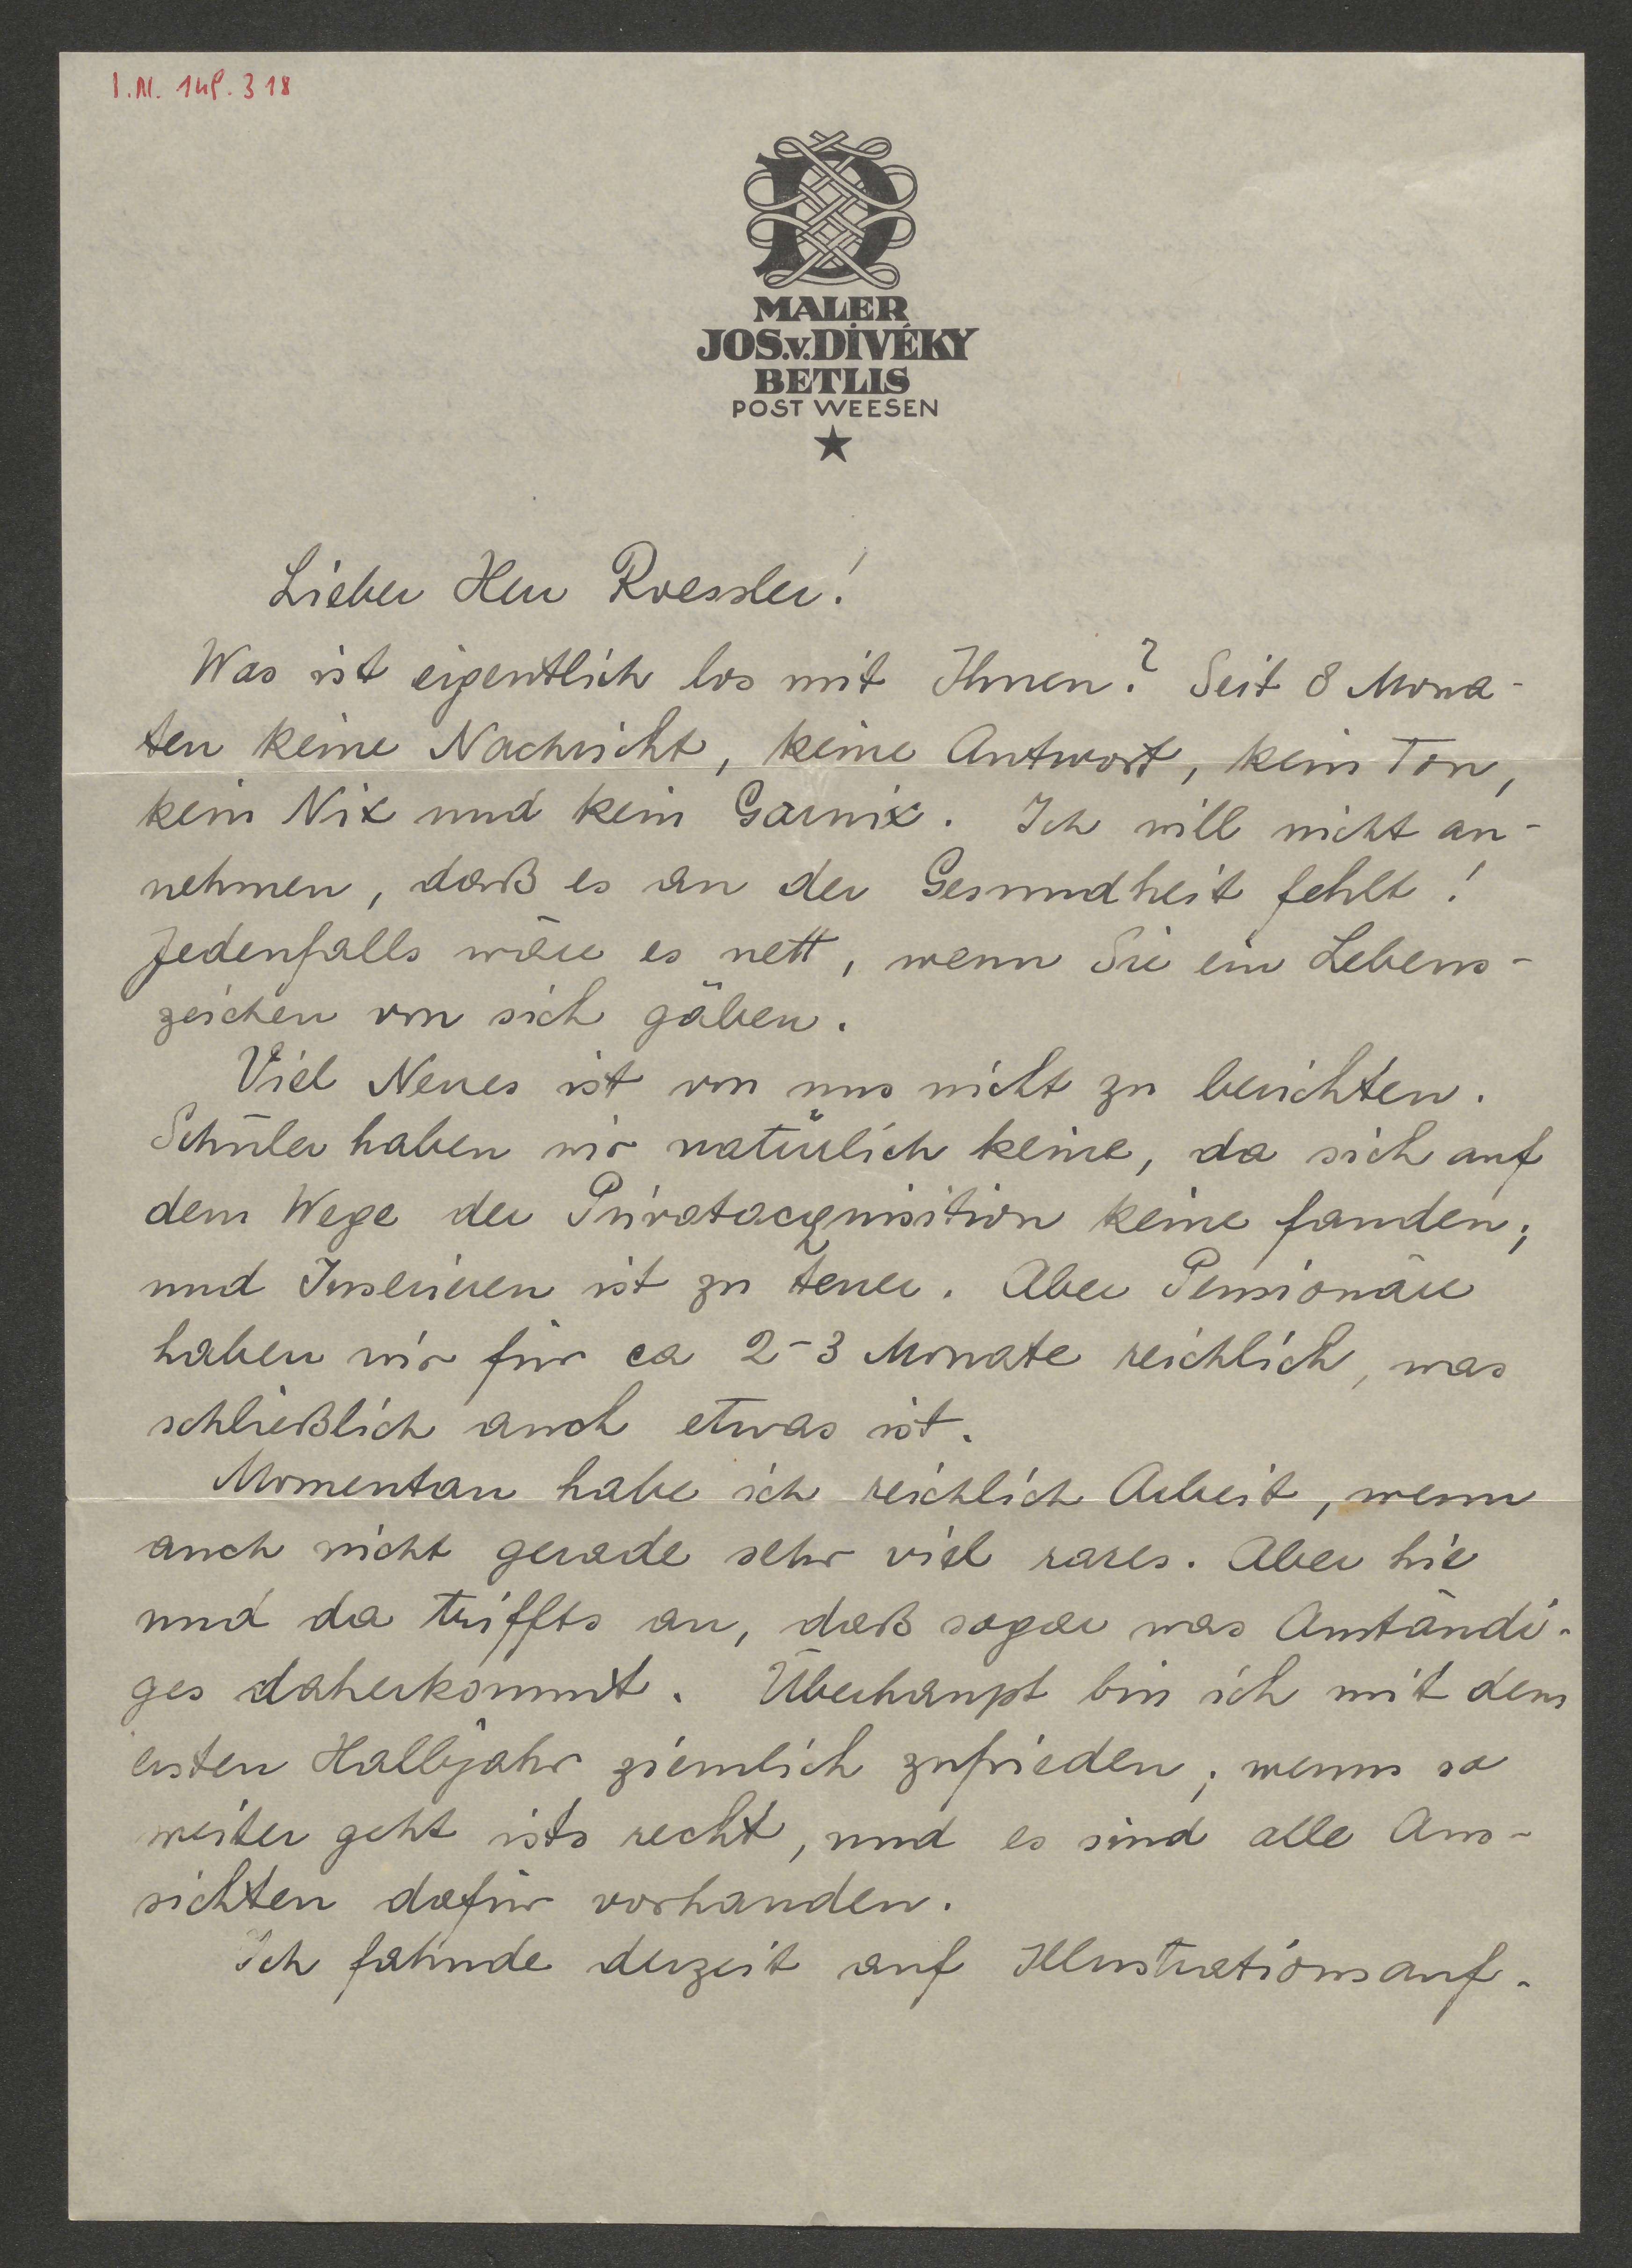 I.N. 148.318
MALER
JOS.v.DIVÉKY
BETLIS
POST WEESEN
Lieber Herr Roessler!
Was ist eigentlich los mit Ihnen? Seit 8 Mona-
ten keine Nachricht, keine Antwort, kein Ton,
kein Nix und kein Garnix. Ich will nicht an-
nehmen, daß es an der Gesundheit fehlt!
Jedenfalls wäre es nett, wenn Sie ein Lebens-
zeichen von sich gäben.
Viel Neues ist von uns nicht zu berichten.
Schüler haben wir natürlich keine, da sich auf
dem Wege der Privatacquisition keine fanden;
und Inserieren ist zu teuer. Aber Pensionäre
haben wir für ca 2-3 Monate reichlich, was
schließlich auch etwas ist.
Momentan habe ich reichlich Arbeit, wenn
auch nicht gerade sehr viel rares. Aber hie
und da triffts an, daß sogar was Anständi-
ges daherkommt. Überhaupt bin ich mit dem
ersten Halbjahr ziemlich zufrieden; wenns so
weiter geht ists recht, und es sind alle Aus-
sichten dafür vorhanden.
Ich fahnde derzeit auf Illustrationsauf-